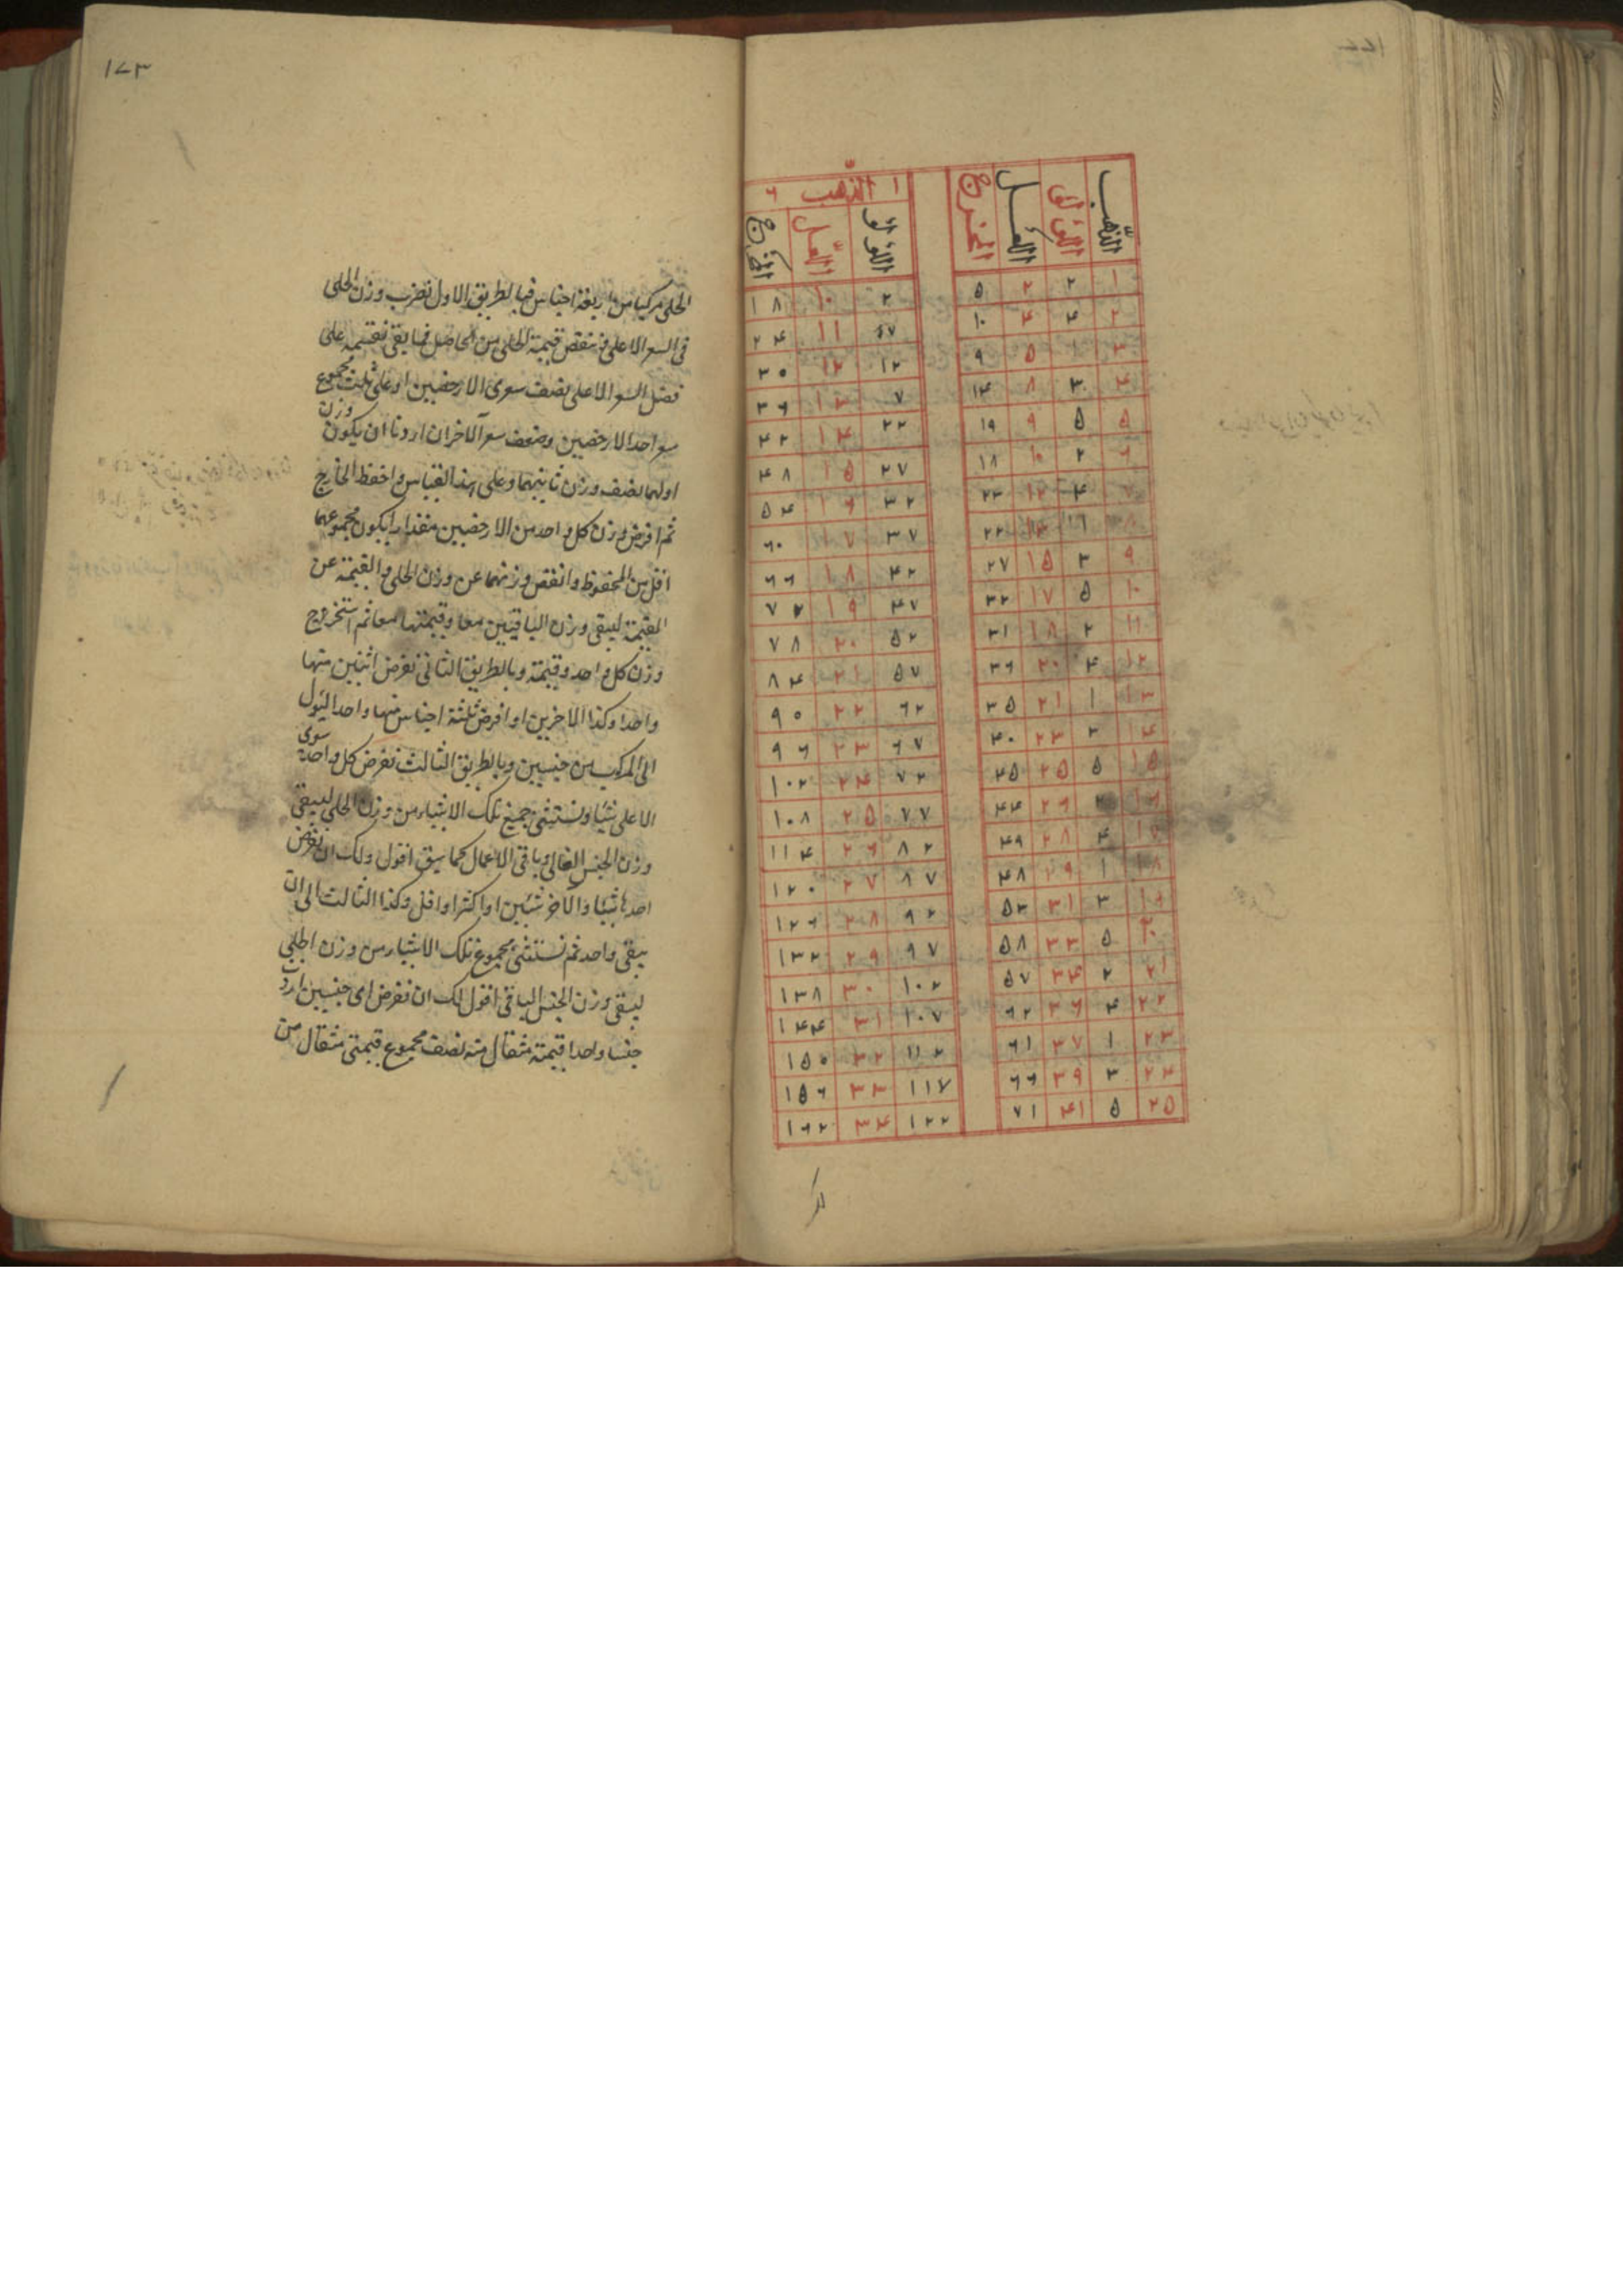 الذهب اللؤلؤ العمل المخرج
١ ٢ ٢ ٥
٢ ٤ ٤ ١٠
٣ ١ ٥ ٩
٤ ٣ ٨ ١٤
٥ ٥ ٩ ١٩
٦ ٢ ١٠ ١٨
٧ ٤ ١٢ ٢٣
٩ ٣ ١٥ ٢٧
١٠ ٥ ١٧ ٣٢
١١ ٢ ١٨ ٣١
١٢ ٤ ٢٠ ٣٦
١٣ ١ ٢١ ٣٥
١٤ ٣ ٢٣ ٤٠
١٥ ٥ ٢٥ ٤٥
١٦ ٢ ٢٦ ٤٤
١٧ ٤ ٢٨ ٤٩
١٨ ١ ٢٩ ٤٨
١٩ ٣ ٣١ ٥٣
٢٠ ٥ ٣٣ ٥٨
٢١ ٢ ٣٤ ٥٧
٢٢ ٤ ٣٦ ٦٢
٢٣ ١ ٣٧ ٦١
٢٤ ٣ ٣٩ ٦٦
٢٥ ٥ ٤١ ٧١
١ الذهب ٦
اللؤلؤ العمل المخرج
٢ ١٠ ١٨
١١ ٢٤
١٢ ١٢ ٣٠
٧ ١٣ ٣٦
٢٢ ١٤ ٤٢
٢٧ ١٥ ٤٨
٣٢ ١٦ ٥٤
٣٧ ١٧ ٦٠
٤٢ ١٨ ٦٦
٤٧ ١٩ ٧٢
٥٢ ٢٠ ٧٨
٥٧ ٢١ ٨٤
٦٢ ٢٢ ٩٠
٦٧ ٢٣ ٩٦
٧٢ ٢٤ ١٠٢
٧٧ ٢٥ ١٠٨
٨٢ ٢٦ ١١٤
٨٧ ٢٧ ١٢٠
٩٢ ٢٨ ١٢٦
٩٧ ٢٩ ١٣٢
١٠٢ ٣٠ ١٣٨
١٠٧ ٣١ ١٤٤
١١٢ ٣٢ ١٥٠
١١٧ ٣٣ ١٥٦
١٢٢ ٣٤ ١٦٢
١٧٣
الحلى مركبا من اربعة اجناس فبالطريق الاول نضرب وزن الحلى
فى السعر الاعلى وننقص قيمة الحلى من الحاصل فما بقى نقسمه على
فضل السعر الاعلى نصف سعرى الارخصين او على ثلث مجموع
سعر احد الارخصين وضعف سعر الآخر ان اردنا ان يكون وزن
اولهما نصف وزن ثانيهما وعلى هذا القياس واحفظ الخارج
ثم افرض وزن كل واحد من الارخصين مقدارا يكون مجموعهما
اقل من المحفوظ وانقص وزنهما عن وزن الحلى والقيمة عن
القيمة ليبقى وزن الباقيين معا وقيمتها معا ثم استخرج
وزن كل واحد وقيمته وبالطريق الثانى نفرض اثنين منها
واحدا وكذا الاخرين او افرض ثلثة اجناس منها واحدا ليئول
الى المركب من جنسين وبالطريق الثالث نفرض كل واحد سوى
الاعلى شيئا ونستثنى جميع تلك الاشياء من وزن الحلى ليبقى
وزن الجنس الغالى وباقى الاعمال كما سبق اقول ولك ان نفرض
احدها شيئا والآخر شيئين او اكثر او اقل وكذا الثالث الى ان
يبقى واحد ثم نستثنى مجموع تلك الاشياء من وزن الحلى
ليبقى وزن الجنس الباقى اقول لك ان نفرض اى جنسين اردت
جنسا واحدا قيمة مثقال منه نصف مجموع قيمتى مثقال من